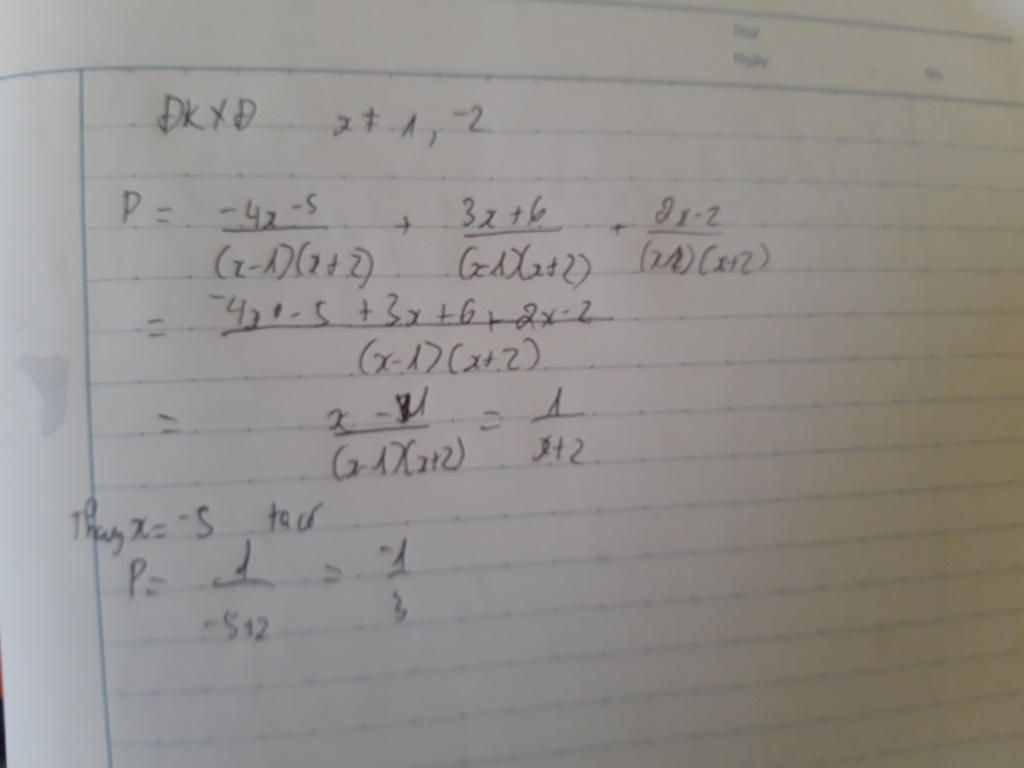 Thứ
Ngày
No.
ĐKXĐ x ≠ 1, -2
P = \frac{-4x-5}{(x-1)(x+2)} + \frac{3x+6}{(x-1)(x+2)} + \frac{2x-2}{(x-1)(x+2)}
= \frac{-4x-5+3x+6+2x-2}{(x-1)(x+2)}
= \frac{x-1}{(x-1)(x+2)} = \frac{1}{x+2}
Thay x = -5 ta có
P = \frac{1}{-5+2} = \frac{-1}{3}